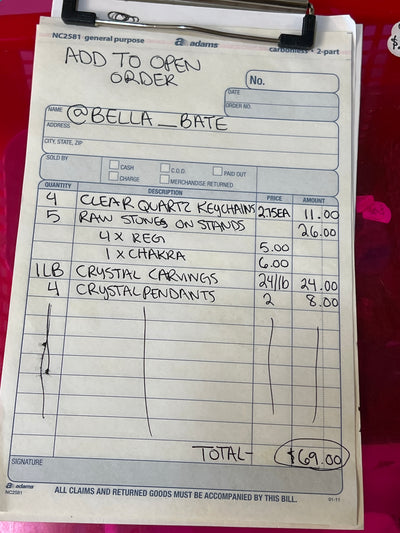 NC2581 general purpose
adams
carbonless • 2-part
ADD TO OPEN
ORDER
No.
DATE
ORDER NO.
NAME @BELLA_BATE
ADDRESS
CITY, STATE, ZIP
SOLD BY
CASH
C.O.D.
PAID OUT
CHARGE
MERCHANDISE RETURNED
QUANTITY DESCRIPTION PRICE AMOUNT
4 CLEAR QUARTZ KEYCHAINS 2.75EA 11.00
5 RAW STONES ON STANDS 26.00
4 X REG 5.00
1 X CHAKRA 6.00
1LB CRYSTAL CARVINGS 24/lb 24.00
4 CRYSTAL PENDANTS 2 8.00
TOTAL- $69.00
SIGNATURE
adams
NC2581
ALL CLAIMS AND RETURNED GOODS MUST BE ACCOMPANIED BY THIS BILL.
01-11